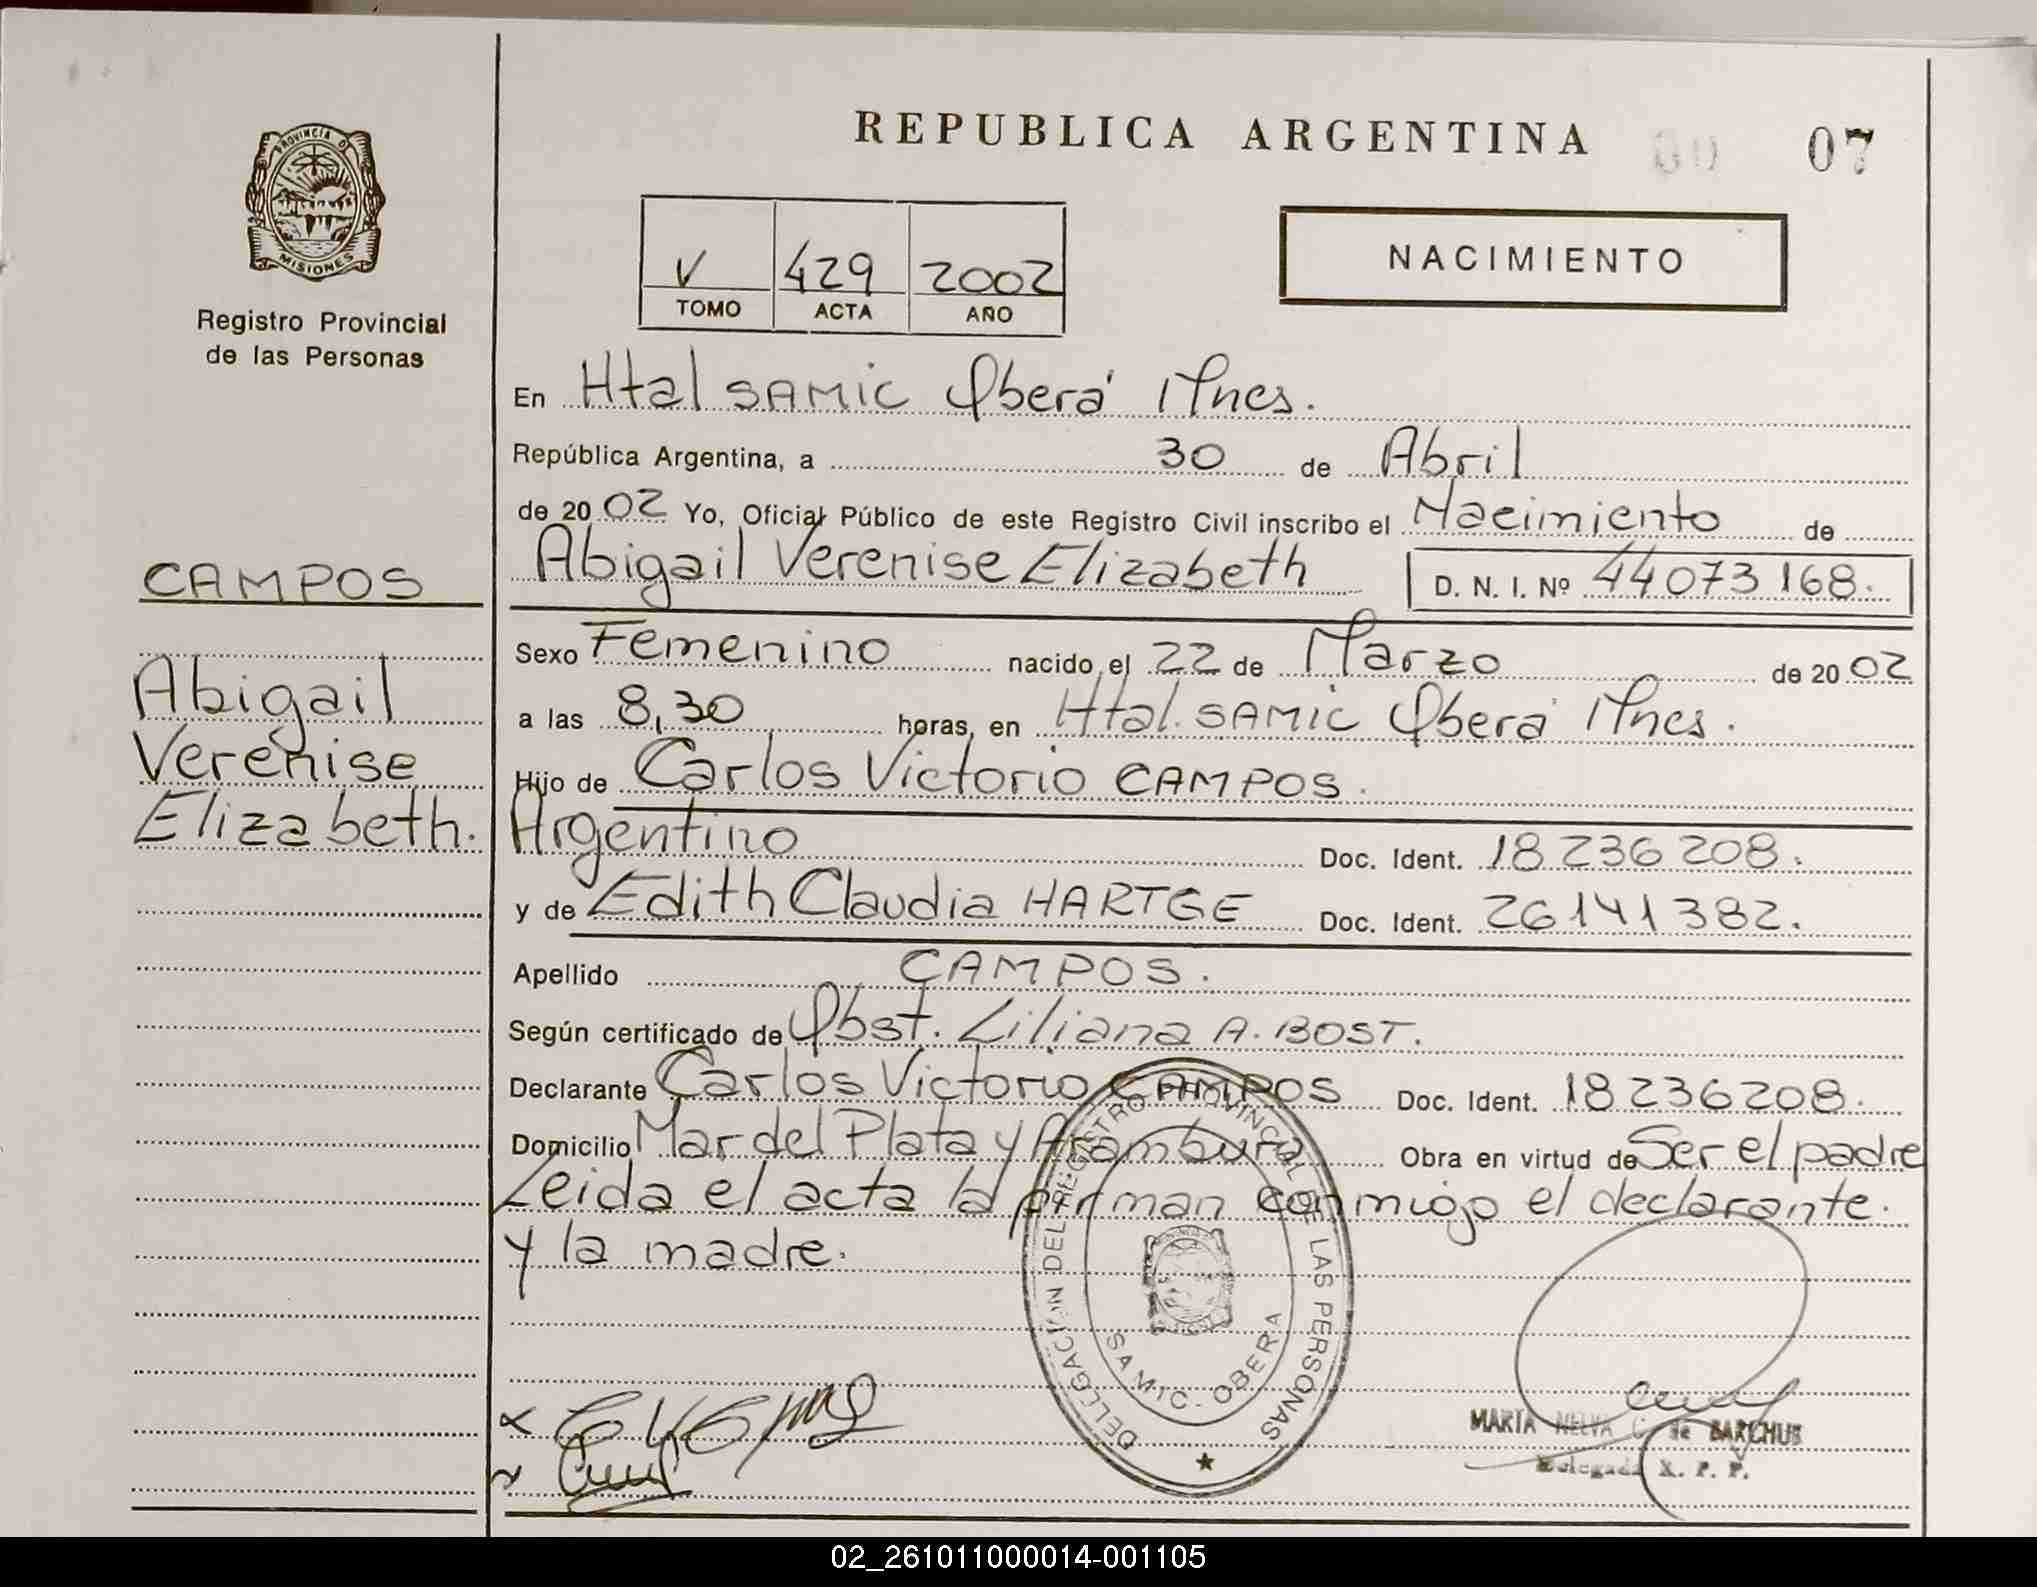 REPUBLICA ARGENTINA 07
PROVINCIA D MISIONES
Registro Provincial
de las Personas
V 429 2002
TOMO ACTA AÑO
NACIMIENTO
En Htal SAMIC Oberá Mnes.
República Argentina, a 30 de Abril
de 2002 Yo, Oficial Público de este Registro Civil inscribo el Nacimiento de
Abigail Verenise Elizabeth D. N. I. Nº 44073168.
CAMPOS
Abigail
Verenise
Elizabeth.
Sexo Femenino nacido el 22 de Marzo de 2002
a las 8,30 horas, en Htal. SAMIC Oberá Mnes.
Hijo de Carlos Victorio CAMPOS.
Argentino Doc. Ident. 18236208.
y de Edith Claudia HARTGE Doc. Ident. 26141382.
Apellido CAMPOS.
Según certificado de Obst. Liliana A. BOST.
Declarante Carlos Victorio CAMPOS Doc. Ident. 18236208.
Domicilio Mar del Plata y Aramburu Obra en virtud de Ser el padre
Leida el acta la firman conmigo el declarante.
y la madre.
DELEGACION DEL REGISTRO PROVINCIAL DE LAS PERSONAS
SAMIC - OBERA
MARTA NELVA C. de BARCHUS
Delegada R. P. P.
02_261011000014-001105